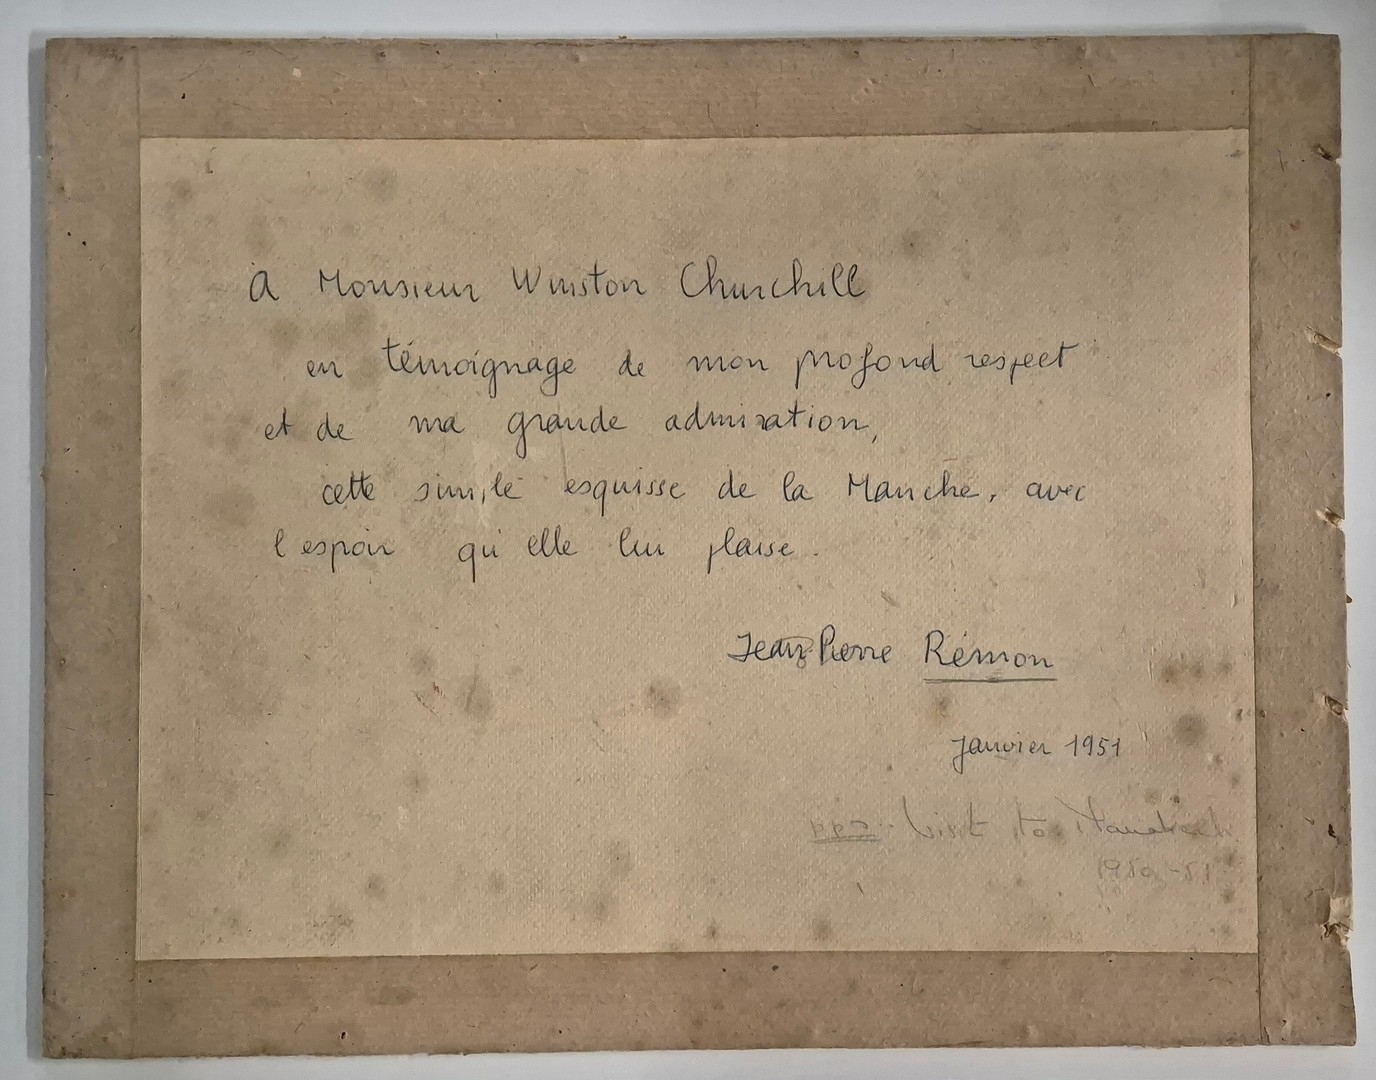 A Monsieur Winston Churchill
en témoignage de mon profond respect
et de ma grande admiration,
cette simple esquisse de la Manche, avec
l'espoir qu'elle lui plaise.
Jean Pierre Rémon
Janvier 1951
Visit to Marrakech
1950-51